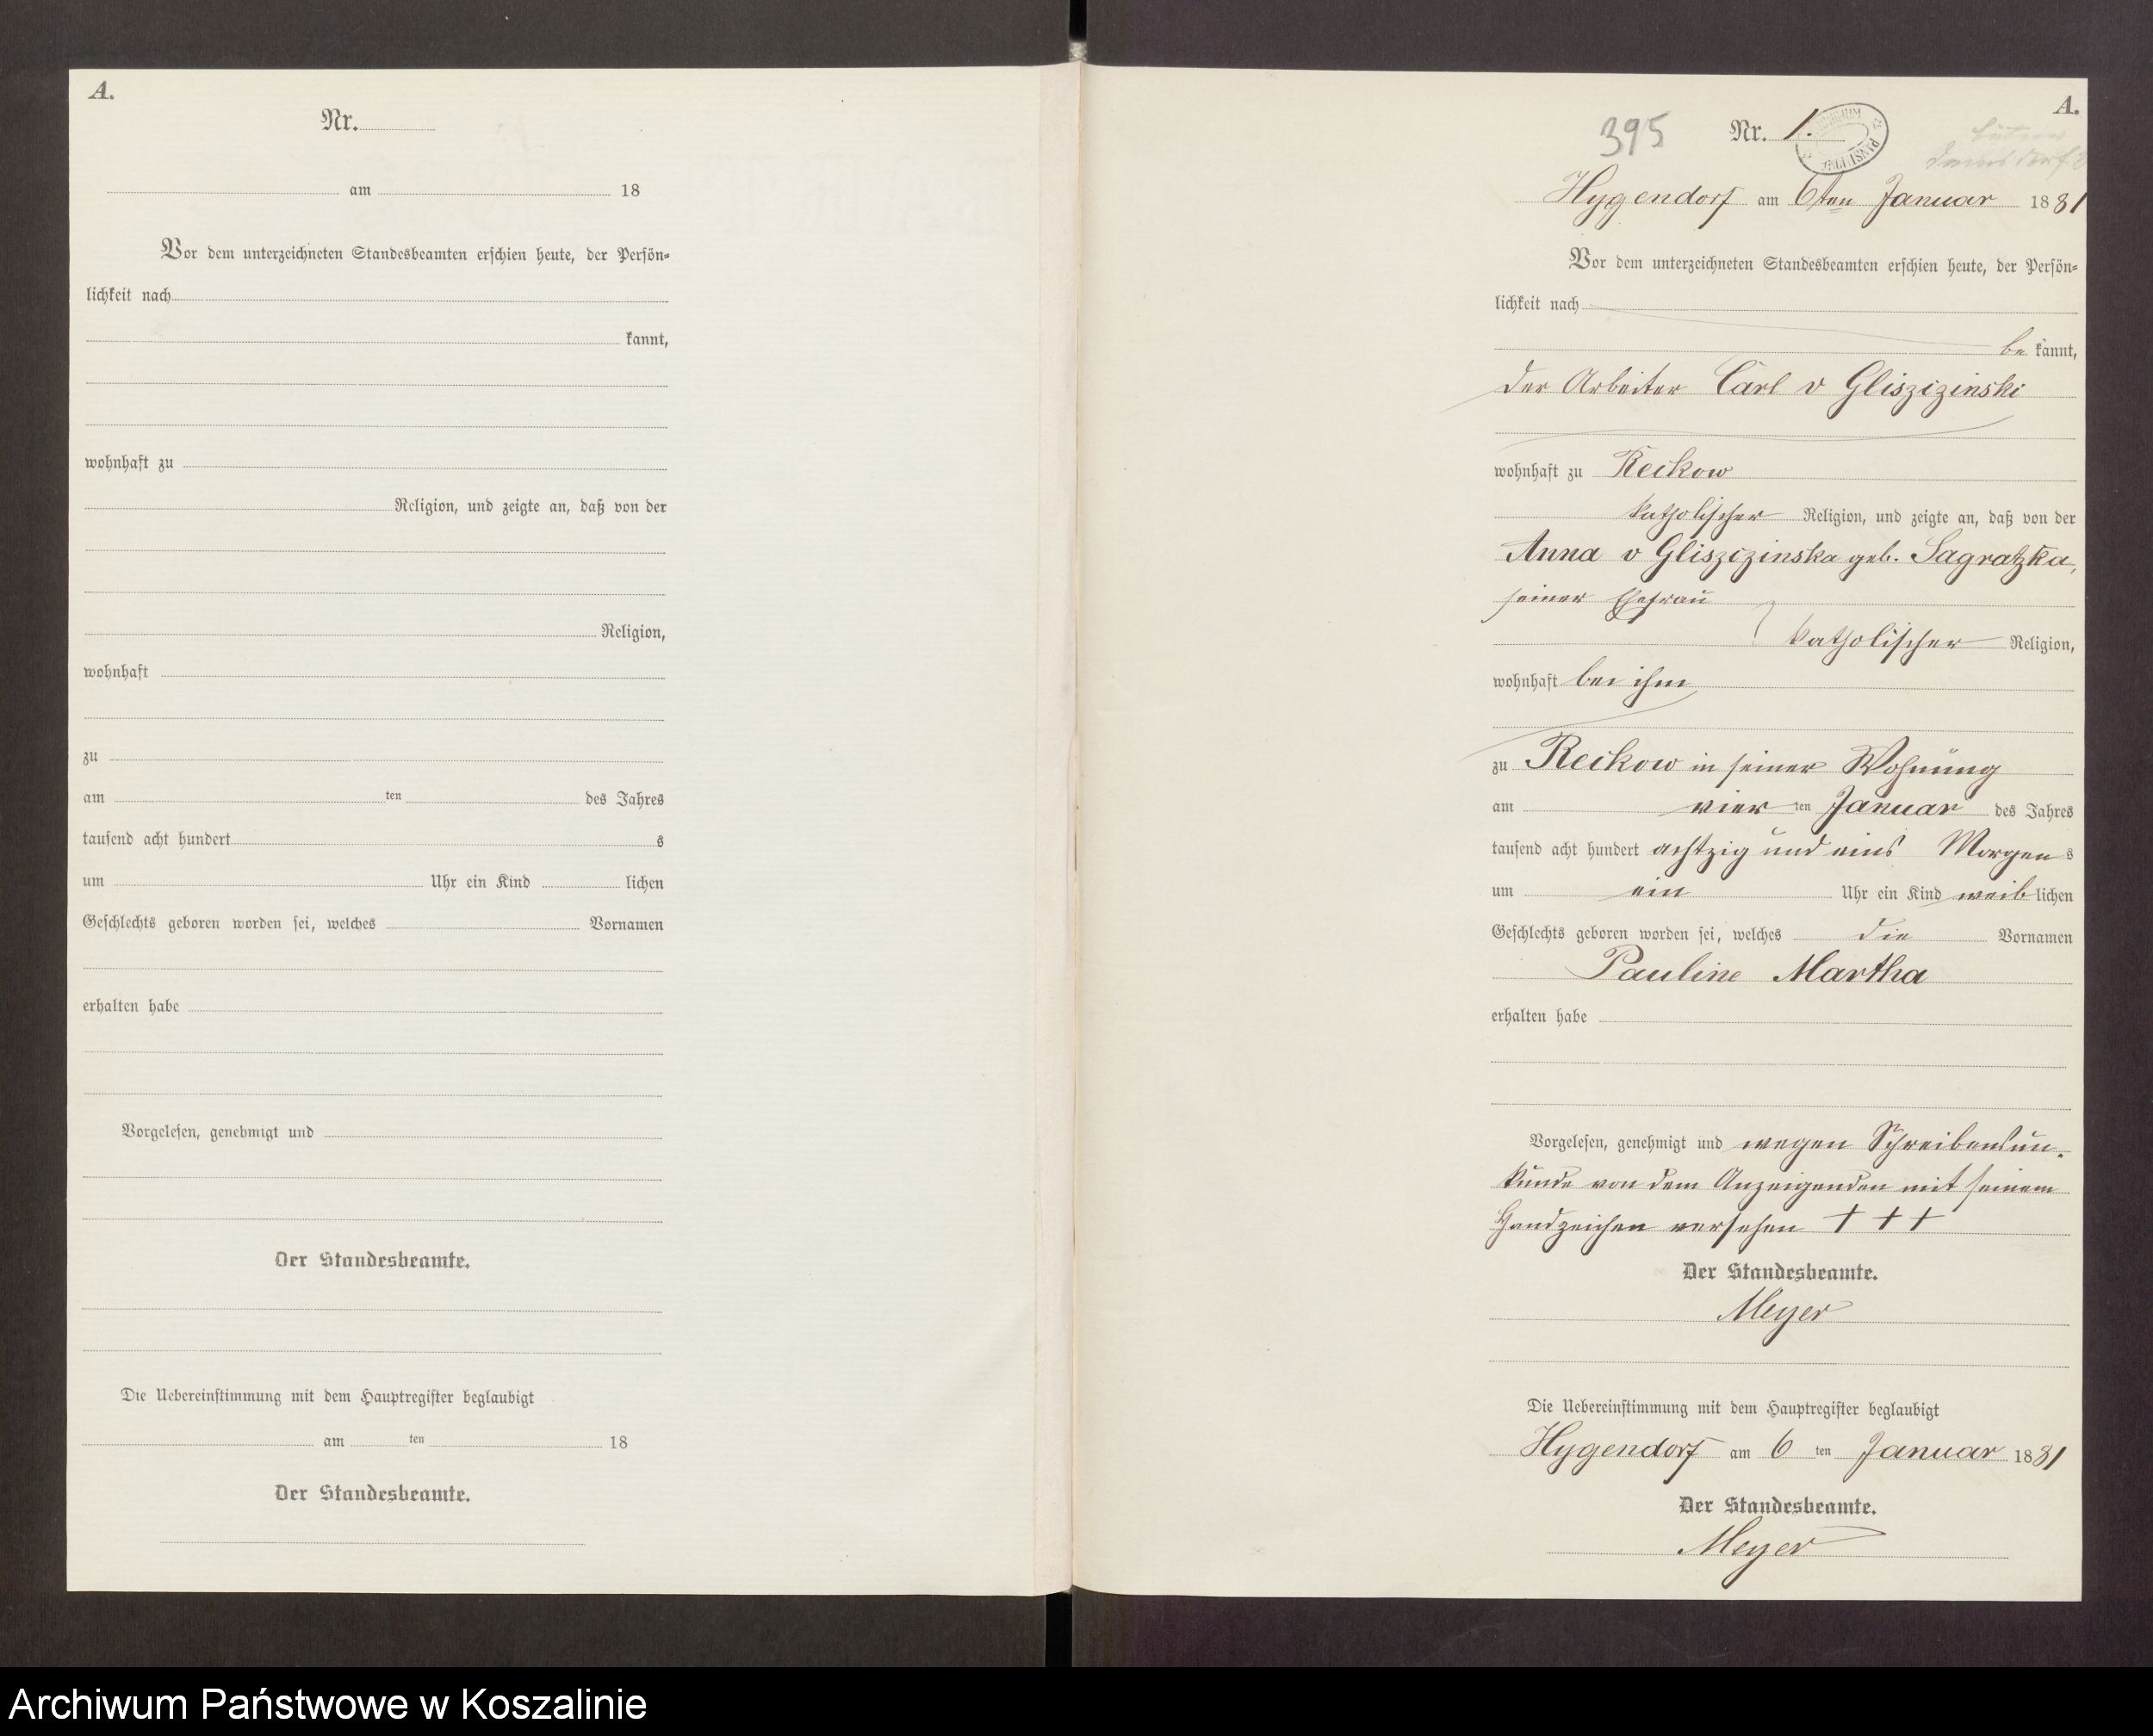 A.
Nr.
am 18
Vor dem unterzeichneten Standesbeamten erschien heute, der Persön-
lichkeit nach
kannt,
wohnhaft zu
Religion, und zeigte an, daß von der
Religion,
wohnhaft
zu
am ten des Jahres
tausend acht hundert s
um Uhr ein Kind lichen
Geschlechts geboren worden sei, welches Vornamen
erhalten habe
Vorgelesen, genehmigt und
Der Standesbeamte.
Die Uebereinstimmung mit dem Hauptregister beglaubigt
am ten 18
Der Standesbeamte.
A.
395 Nr. 1.
Hygendorf am 6ten Januar 1881
Vor dem unterzeichneten Standesbeamten erschien heute, der Persön-
lichkeit nach
be kannt,
der Arbeiter Carl v Gliszizinski
wohnhaft zu Reckow
katholischer Religion, und zeigte an, daß von der
Anna v Gliszizinska geb. Sagratzka,
seiner Ehefrau
katholischer Religion,
wohnhaft bei ihm
zu Reckow in seiner Wohnung
am vier ten Januar des Jahres
tausend acht hundert achtzig und eins Morgen s
um ein Uhr ein Kind weib lichen
Geschlechts geboren worden sei, welches die Vornamen
Pauline Martha
erhalten habe
Vorgelesen, genehmigt und wegen Schreibensun-
kunde von dem Anzeigenden mit seinem
Handzeichen versehen + + +
Der Standesbeamte.
Meyer
Die Uebereinstimmung mit dem Hauptregister beglaubigt
Hygendorf am 6 ten Januar 1881
Der Standesbeamte.
Meyer
Archiwum Państwowe w Koszalinie